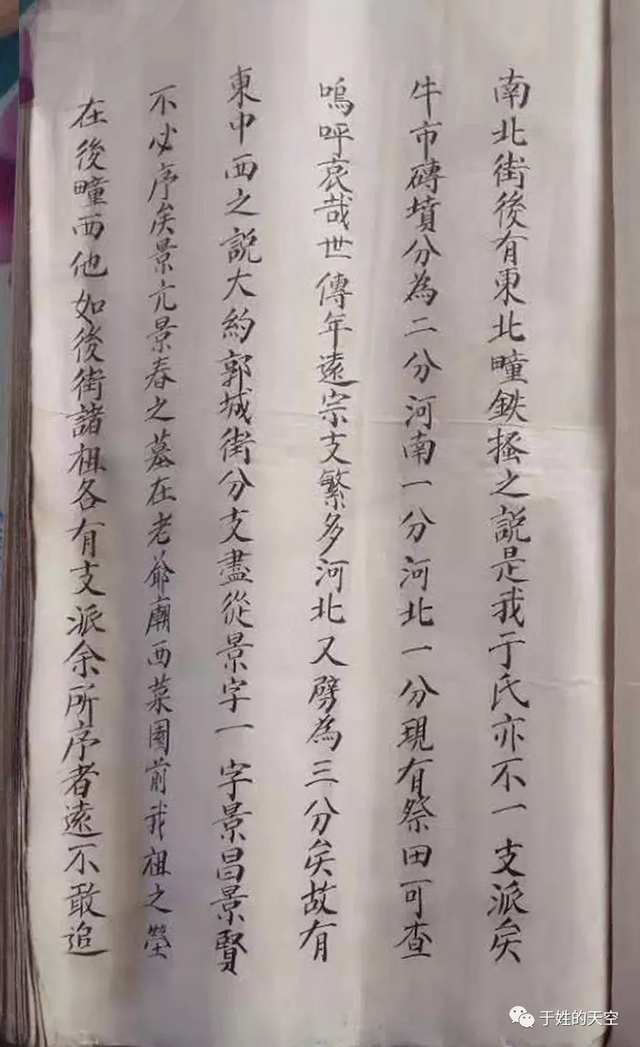 南北街後有東北疃鉄搔之説是我于氏亦不一支派矣
牛市磚墳分為二分河南一分河北一分現有祭田可查
嗚呼哀哉世傳年遠宗支繁多河北又劈為三分矣故有
東中西之説大約郭城街分支盡從景字一字景昌景賢
不必序矣景亢景春之墓在老爺廟西菜園前我祖之塋
在後疃西他如後街諸祖各有支派余所序者遠不敢追
于姓的天空